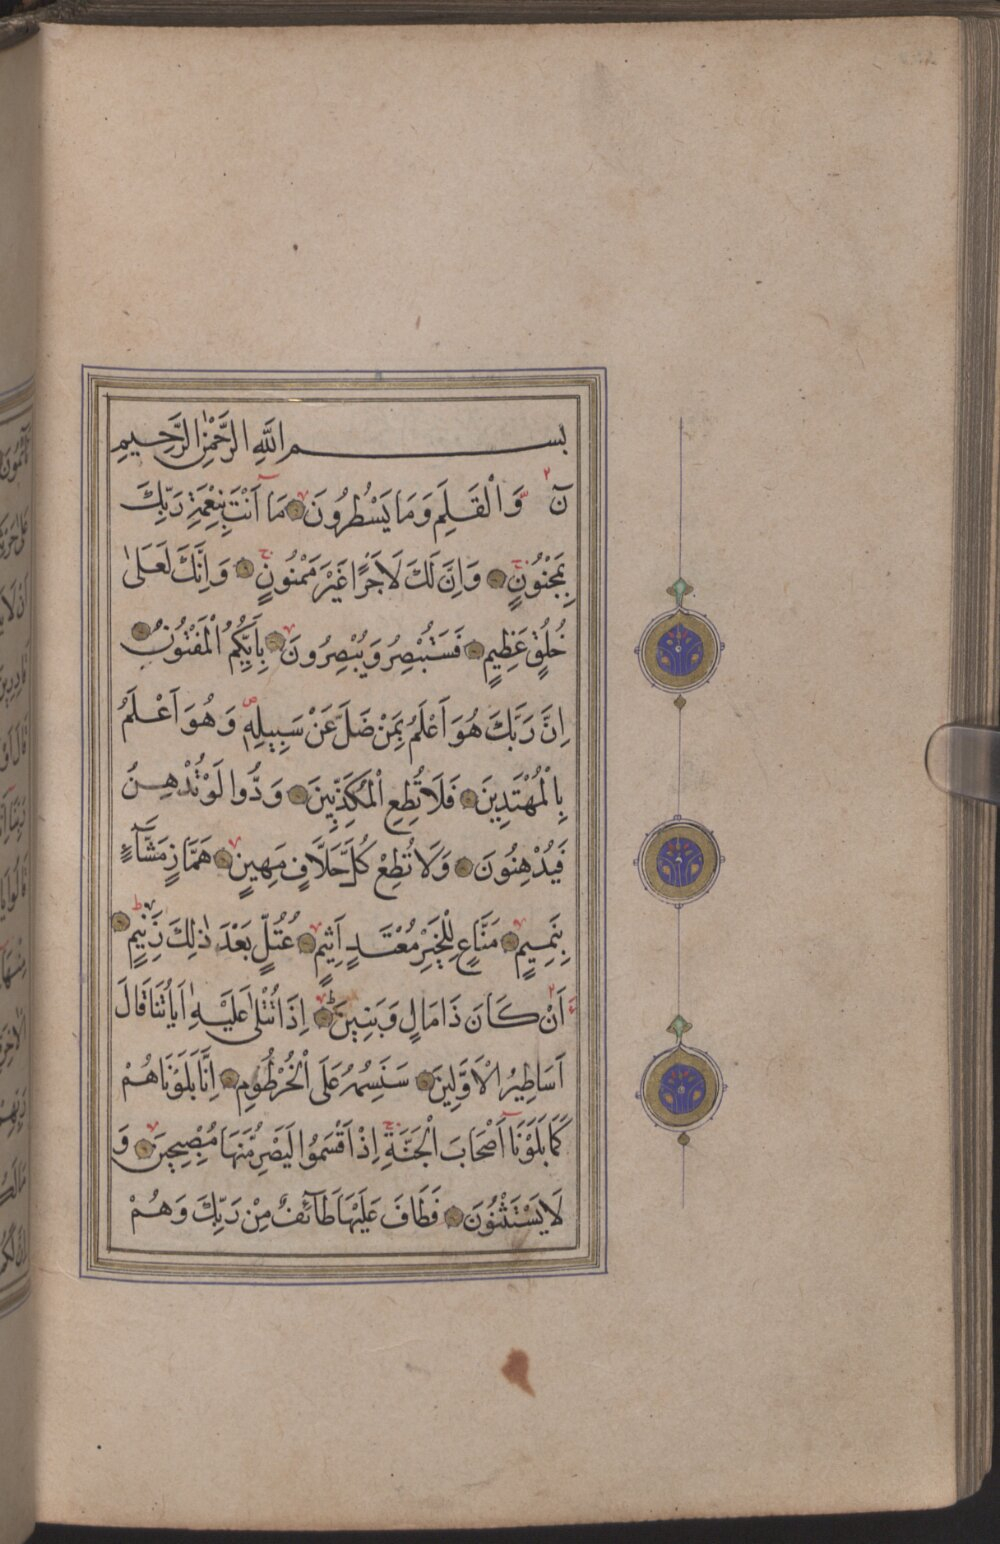 بسم الله الرَّحْمٰنِ الرَّحِيمِ
نۤ وَالْقَلَمِ وَمَا يَسْطُرُونَ مَا أَنْتَ بِنِعْمَةِ رَبِّكَ
بِمَجْنُونٍ وَاِنَّ لَكَ لَاَجْرًا غَيْرَ مَمْنُونٍ وَاِنَّكَ لَعَلٰى
خُلُقٍ عَظِيمٍ فَسَتُبْصِرُ وَيُبْصِرُونَ بِاَيِّكُمُ الْمَفْتُونُ
اِنَّ رَبَّكَ هُوَ اَعْلَمُ بِمَنْ ضَلَّ عَنْ سَبِيلِهِ وَهُوَ اَعْلَمُ
بِالْمُهْتَدِينَ فَلَا تُطِعِ الْمُكَذِّبِينَ وَدُّوا لَوْ تُدْهِنُ
فَيُدْهِنُونَ وَلَا تُطِعْ كُلَّ حَلَّافٍ مَهِينٍ هَمَّازٍ مَشَّاءٍ
بِنَمِيمٍ مَنَّاعٍ لِلْخَيْرِ مُعْتَدٍ اَثِيمٍ عُتُلٍّ بَعْدَ ذٰلِكَ زَنِيمٍ
اَنْ كَانَ ذَا مَالٍ وَبَنِينَ اِذَا تُتْلٰى عَلَيْهِ اٰيَاتُنَا قَالَ
اَسَاطِيرُ الْاَوَّلِينَ سَنَسِمُهُ عَلَى الْخُرْطُومِ اِنَّا بَلَوْنَاهُمْ
كَمَا بَلَوْنَا اَصْحَابَ الْجَنَّةِ اِذْ اَقْسَمُوا لَيَصْرِمُنَّهَا مُصْبِحِينَ وَ
لَا يَسْتَثْنُونَ فَطَافَ عَلَيْهَا طَآئِفٌ مِنْ رَبِّكَ وَهُمْ